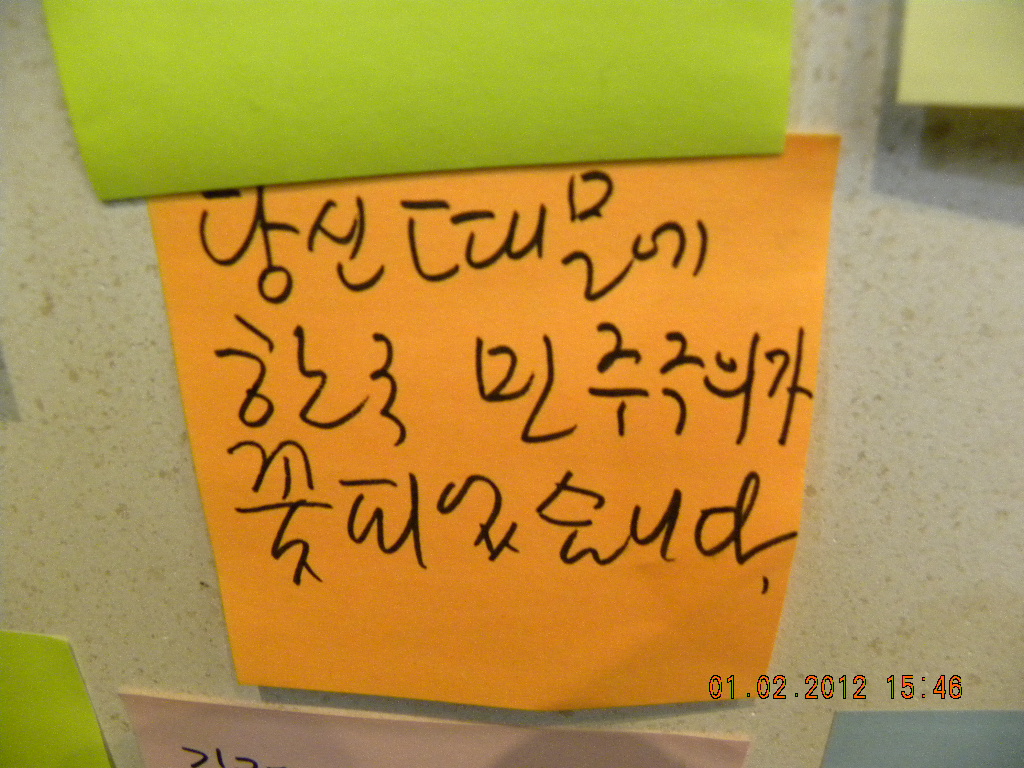 당신 때물에
한국 민주주의가
꽃피었습니다.
01.02.2012 15:46